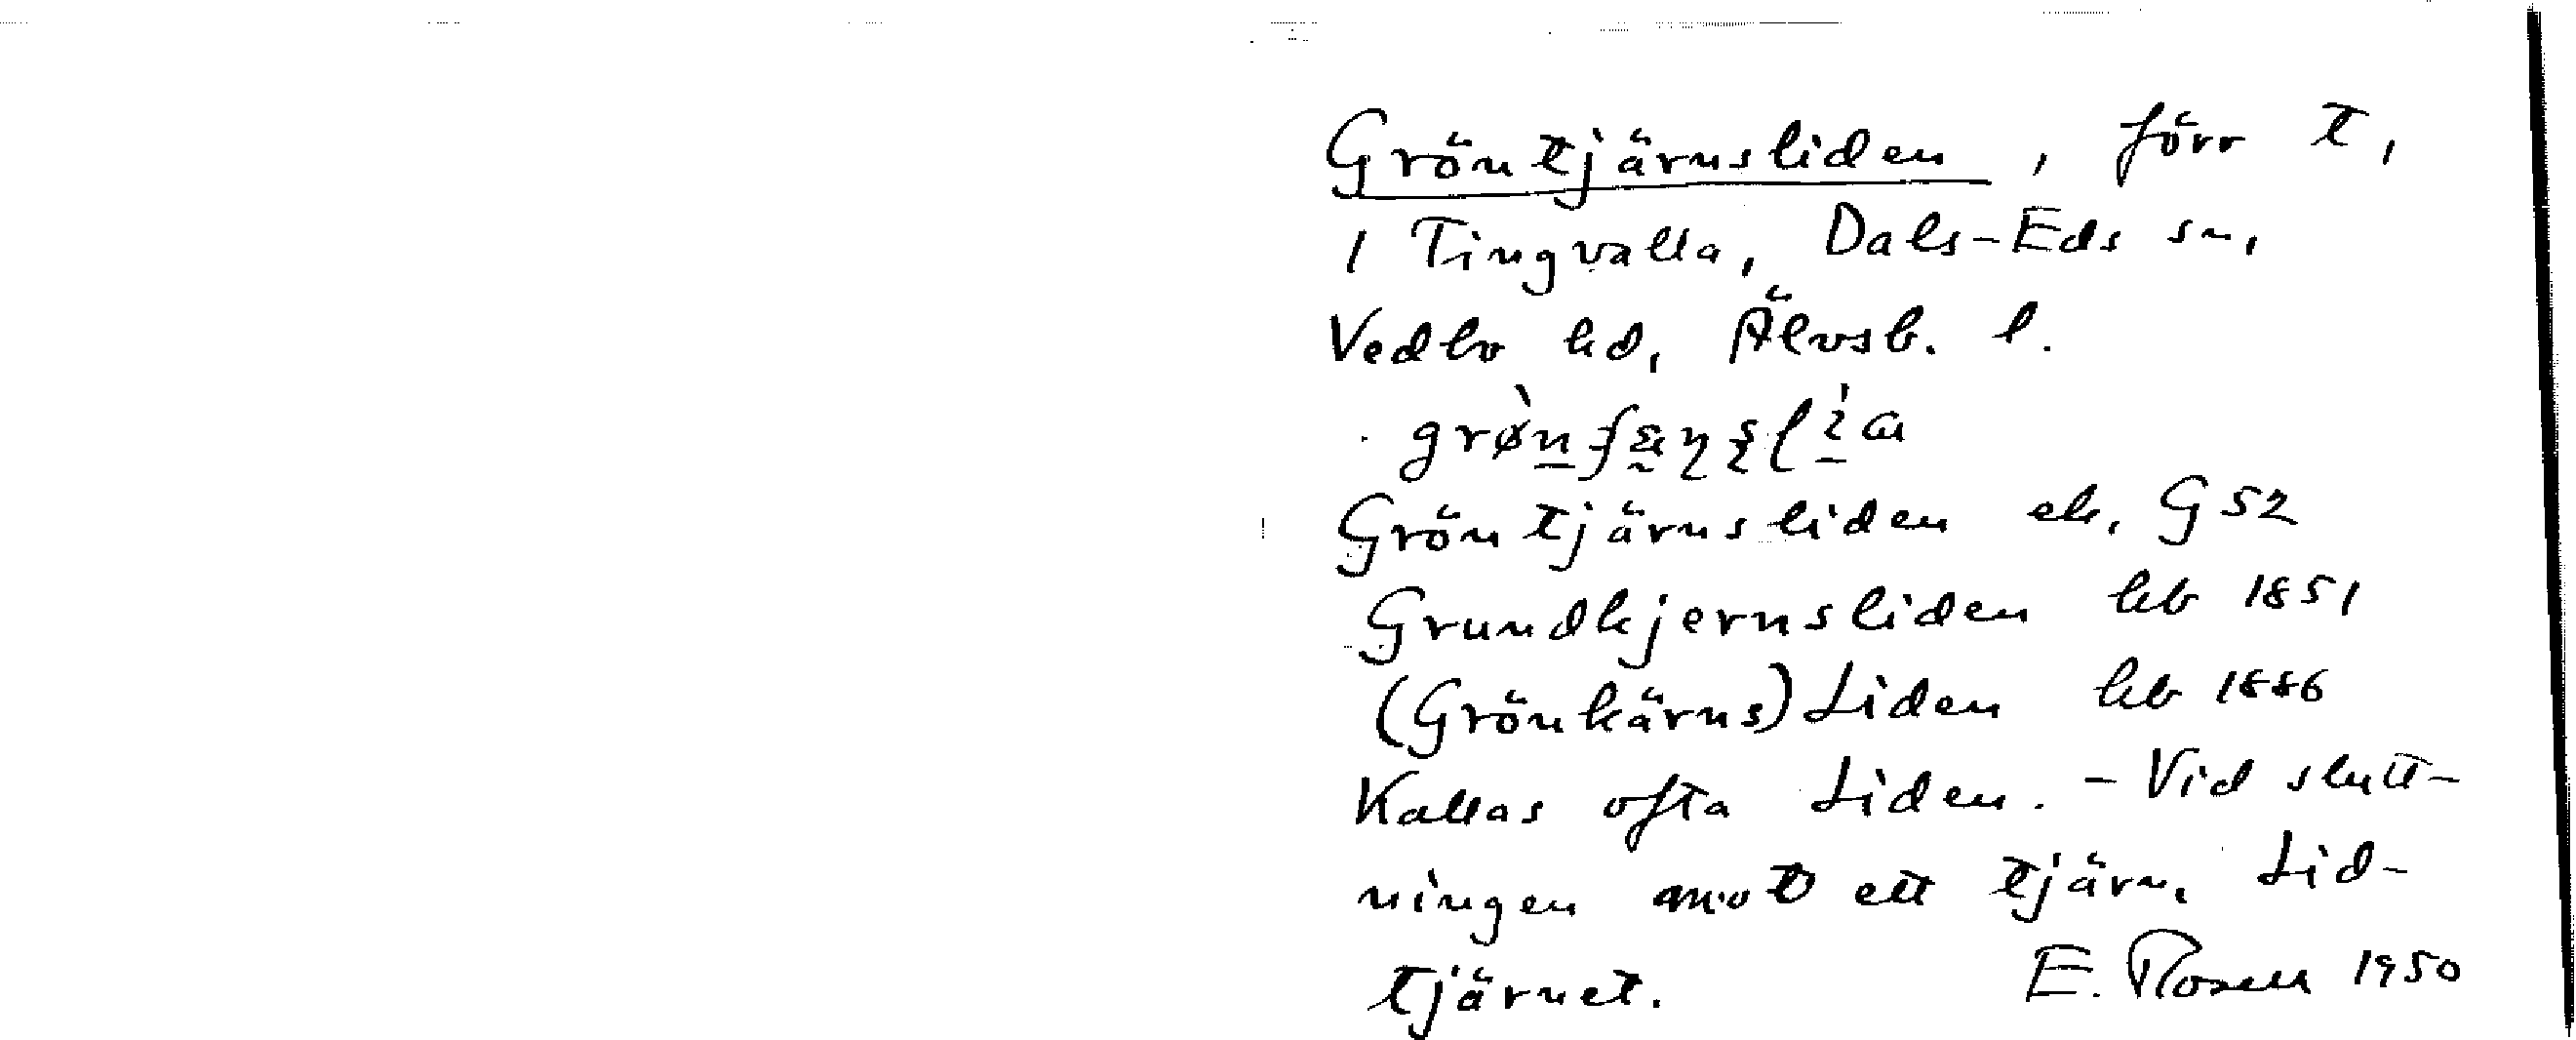 Gröntjärnsliden, förr t,
1 Tingvalla, Dals-Eds sn,
Vedbo hd, Älvsb. l.
Gröntjärnsliden ek. G 52
Grundkjernsliden hb 1851
(Grönkärns)Liden hb 1886
Kallas ofta Liden. - Vid slutt-
ningen mot ett tjärn, Lid-
tjärnet. E. Rosell 1950